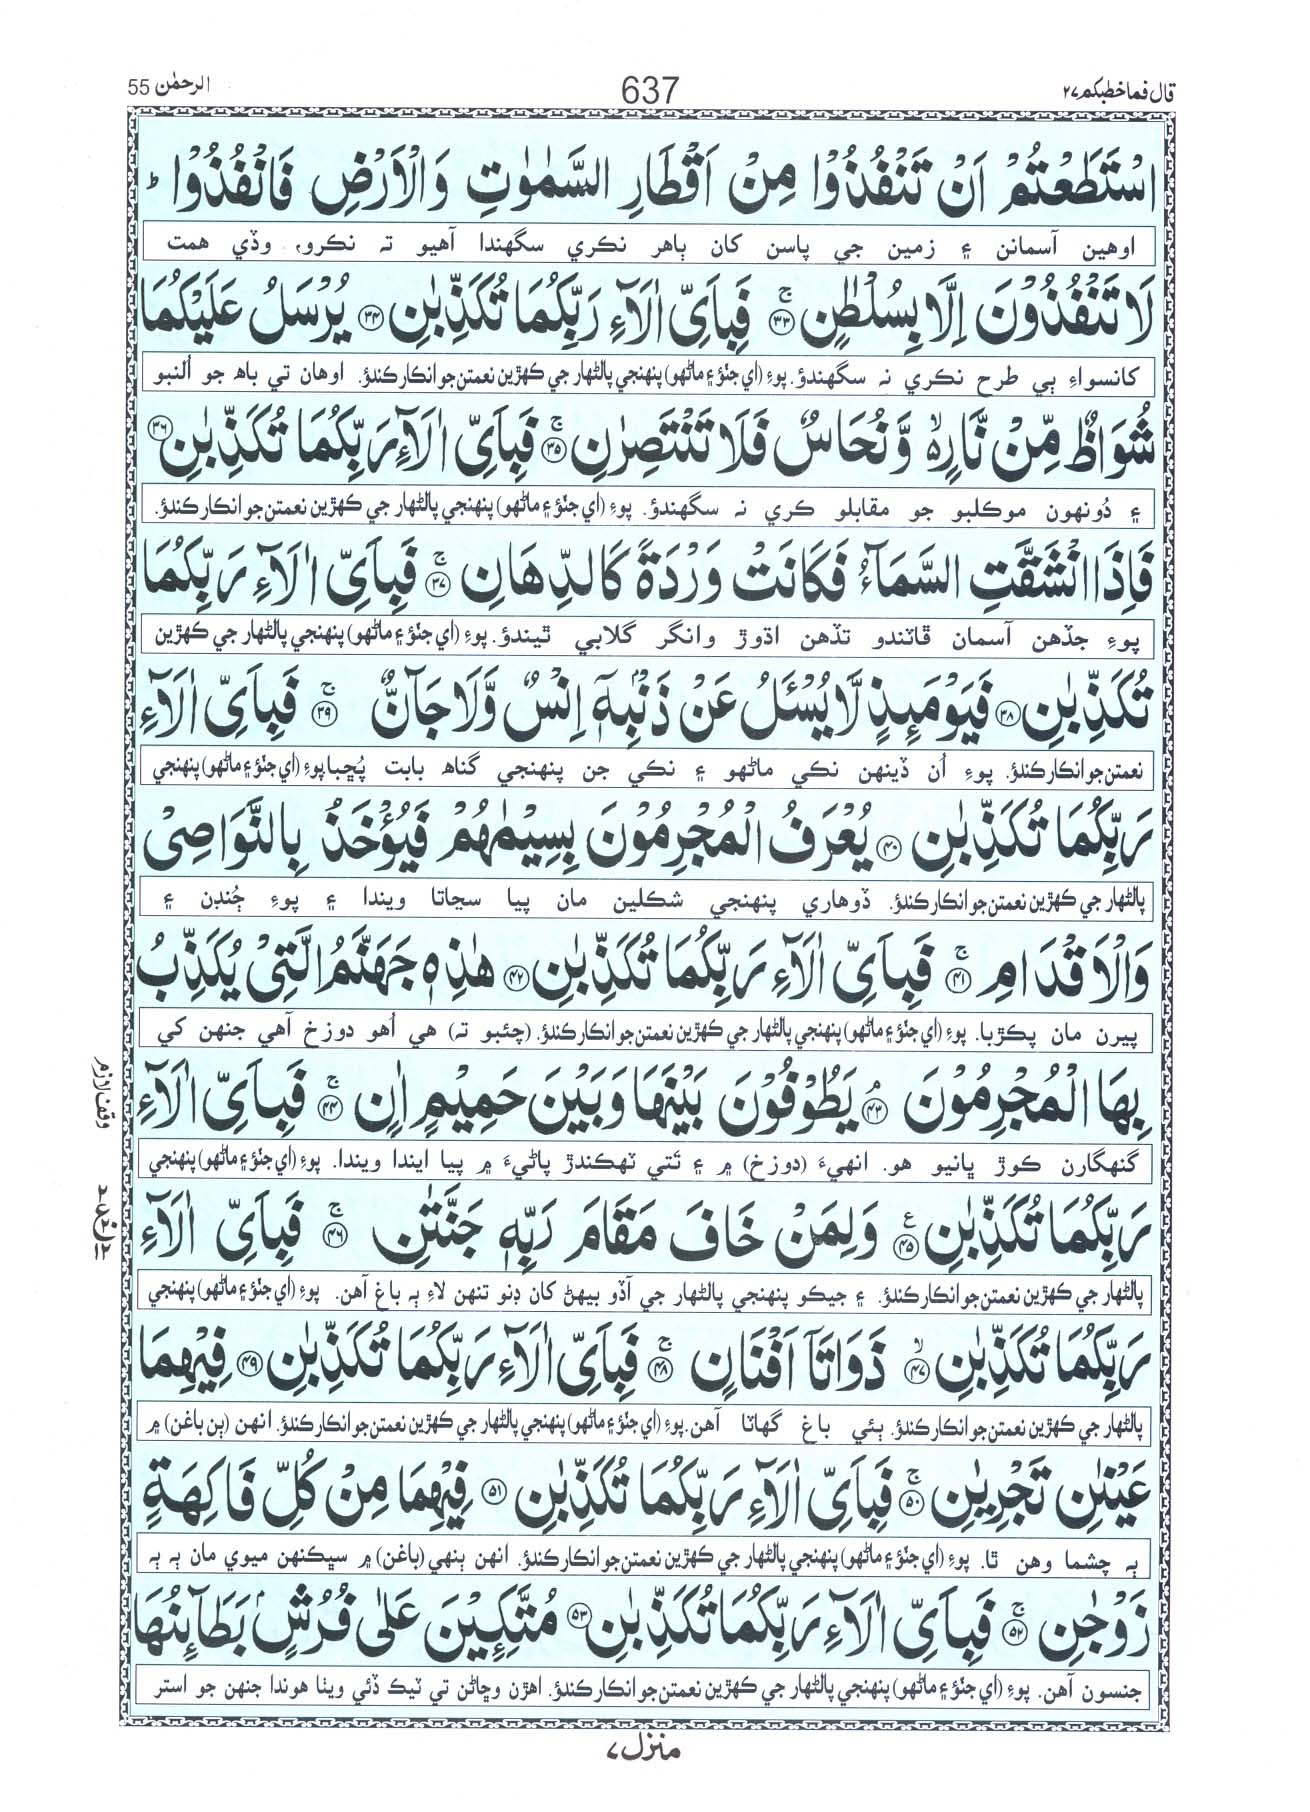 قال فما خطبكم ٢٧
637
الرحمٰن 55
اسْتَطَعْتُمْ اَنْ تَنْفُذُوْا مِنْ اَقْطَارِ السَّمٰوٰتِ وَالْاَرْضِ فَانْفُذُوْا ؕ
اوهين آسمانن ۽ زمين جي پاسن کان ٻاهر نڪري سگهندا آهيو تہ نڪرو، وڏي همت
لَا تَنْفُذُوْنَ اِلَّا بِسُلْطٰنٍ ۚ﴿۳۳﴾ فَبِاَىِّ اٰلَآءِ رَبِّكُمَا تُكَذِّبٰنِ ﴿۳۴﴾ يُرْسَلُ عَلَيْكُمَا
کانسواءِ ٻي طرح نڪري نہ سگهندؤ. پوءِ (اي جنؤ ۽ ماڻهو) پنهنجي پالڻهار جي ڪهڙين نعمتن جو انڪار ڪندؤ. اوهان تي باهہ جو اُلنبو
شُوَاظٌ مِّنْ نَّارٍ ۙ وَّنُحَاسٌ فَلَا تَنْتَصِرٰنِ ۚ﴿۳۵﴾ فَبِاَىِّ اٰلَآءِ رَبِّكُمَا تُكَذِّبٰنِ ﴿۳۶﴾
۽ دُونهون موڪلبو جو مقابلو ڪري نہ سگهندؤ. پوءِ (اي جنؤ ۽ ماڻهو) پنهنجي پالڻهار جي ڪهڙين نعمتن جو انڪار ڪندؤ.
فَاِذَا انْشَقَّتِ السَّمَآءُ فَكَانَتْ وَرْدَةً كَالدِّهَانِ ۚ﴿۳۷﴾ فَبِاَىِّ اٰلَآءِ رَبِّكُمَا
پوءِ جڏهن آسمان ڦاٽندو تڏهن اڌوڙ وانگر گلابي ٿيندؤ. پوءِ (اي جنؤ ۽ ماڻهو) پنهنجي پالڻهار جي ڪهڙين
تُكَذِّبٰنِ ﴿۳۸﴾ فَيَوْمَئِذٍ لَّا يُسْـَٔلُ عَنْ ذَنْۢبِهٖۤ اِنْسٌ وَّلَا جَآنٌّ ۚ﴿۳۹﴾ فَبِاَىِّ اٰلَآءِ
نعمتن جو انڪار ڪندؤ. پوءِ اُن ڏينهن نڪي ماڻهو ۽ نڪي جن پنهنجي گناهہ بابت پُڇبا پوءِ (اي جنؤ ۽ ماڻهو) پنهنجي
رَبِّكُمَا تُكَذِّبٰنِ ﴿۴۰﴾ يُعْرَفُ الْمُجْرِمُوْنَ بِسِيْمٰهُمْ فَيُؤْخَذُ بِالنَّوَاصِىْ
پالڻهار جي ڪهڙين نعمتن جو انڪار ڪندؤ. ڏوهاري پنهنجي شڪلين مان پيا سڃاتا ويندا ۽ پوءِ چُنڊن ۽
وَالْاَقْدَامِ ۚ﴿۴۱﴾ فَبِاَىِّ اٰلَآءِ رَبِّكُمَا تُكَذِّبٰنِ ﴿۴۲﴾ هٰذِهٖ جَهَنَّمُ الَّتِىْ يُكَذِّبُ
پيرن مان پڪڙبا. پوءِ (اي جنؤ ۽ ماڻهو) پنهنجي پالڻهار جي ڪهڙين نعمتن جو انڪار ڪندؤ. (چئبو تہ) هي اُهو دوزخ آهي جنهن کي
بِهَا الْمُجْرِمُوْنَ ۘ﴿۴۳﴾ يَطُوْفُوْنَ بَيْنَهَا وَبَيْنَ حَمِيْمٍ اٰنٍ ۚ﴿۴۴﴾ فَبِاَىِّ اٰلَآءِ
وقف لازم
گنهگارن ڪوڙ ڀانيو هو. انهيءَ (دوزخ) ۾ ۽ تَتي ٽهڪندڙ پاڻيءَ ۾ پيا ايندا ويندا. پوءِ (اي جنؤ ۽ ماڻهو) پنهنجي
رَبِّكُمَا تُكَذِّبٰنِ ۧ﴿۴۵﴾ وَلِمَنْ خَافَ مَقَامَ رَبِّهٖ جَنَّتٰنِ ۚ﴿۴۶﴾ فَبِاَىِّ اٰلَآءِ
پالڻهار جي ڪهڙين نعمتن جو انڪار ڪندؤ. ۽ جيڪو پنهنجي پالڻهار جي آڏو بيهڻ کان ڊنو تنهن لاءِ ٻہ باغ آهن. پوءِ (اي جنؤ ۽ ماڻهو) پنهنجي
رَبِّكُمَا تُكَذِّبٰنِ ۙ﴿۴۷﴾ ذَوَاتَآ اَفْنَانٍ ۚ﴿۴۸﴾ فَبِاَىِّ اٰلَآءِ رَبِّكُمَا تُكَذِّبٰنِ ﴿۴۹﴾ فِيْهِمَا
پالڻهار جي ڪهڙين نعمتن جو انڪار ڪندؤ. ٻئي باغ گهاٽا آهن. پوءِ (اي جنؤ ۽ ماڻهو) پنهنجي پالڻهار جي ڪهڙين نعمتن جو انڪار ڪندؤ. انهن (ٻن باغن) ۾
عَيْنٰنِ تَجْرِيٰنِ ۚ﴿۵۰﴾ فَبِاَىِّ اٰلَآءِ رَبِّكُمَا تُكَذِّبٰنِ ﴿۵۱﴾ فِيْهِمَا مِنْ كُلِّ فَاكِهَةٍ
ٻہ چشما وهن ٿا. پوءِ (اي جنؤ ۽ ماڻهو) پنهنجي پالڻهار جي ڪهڙين نعمتن جو انڪار ڪندؤ. انهن ٻنهي (باغن) ۾ سڀڪنهن ميوي مان ٻہ ٻہ
زَوْجٰنِ ۚ﴿۵۲﴾ فَبِاَىِّ اٰلَآءِ رَبِّكُمَا تُكَذِّبٰنِ ﴿۵۳﴾ مُتَّكِـِٕيْنَ عَلٰى فُرُشٍۢ بَطَآئِنُهَا
جنسون آهن. پوءِ (اي جنؤ ۽ ماڻهو) پنهنجي پالڻهار جي ڪهڙين نعمتن جو انڪار ڪندؤ. اهڙن وڇاڻن تي ٽيڪ ڏئي ويٺا هوندا جنهن جو استر
منزل ۷